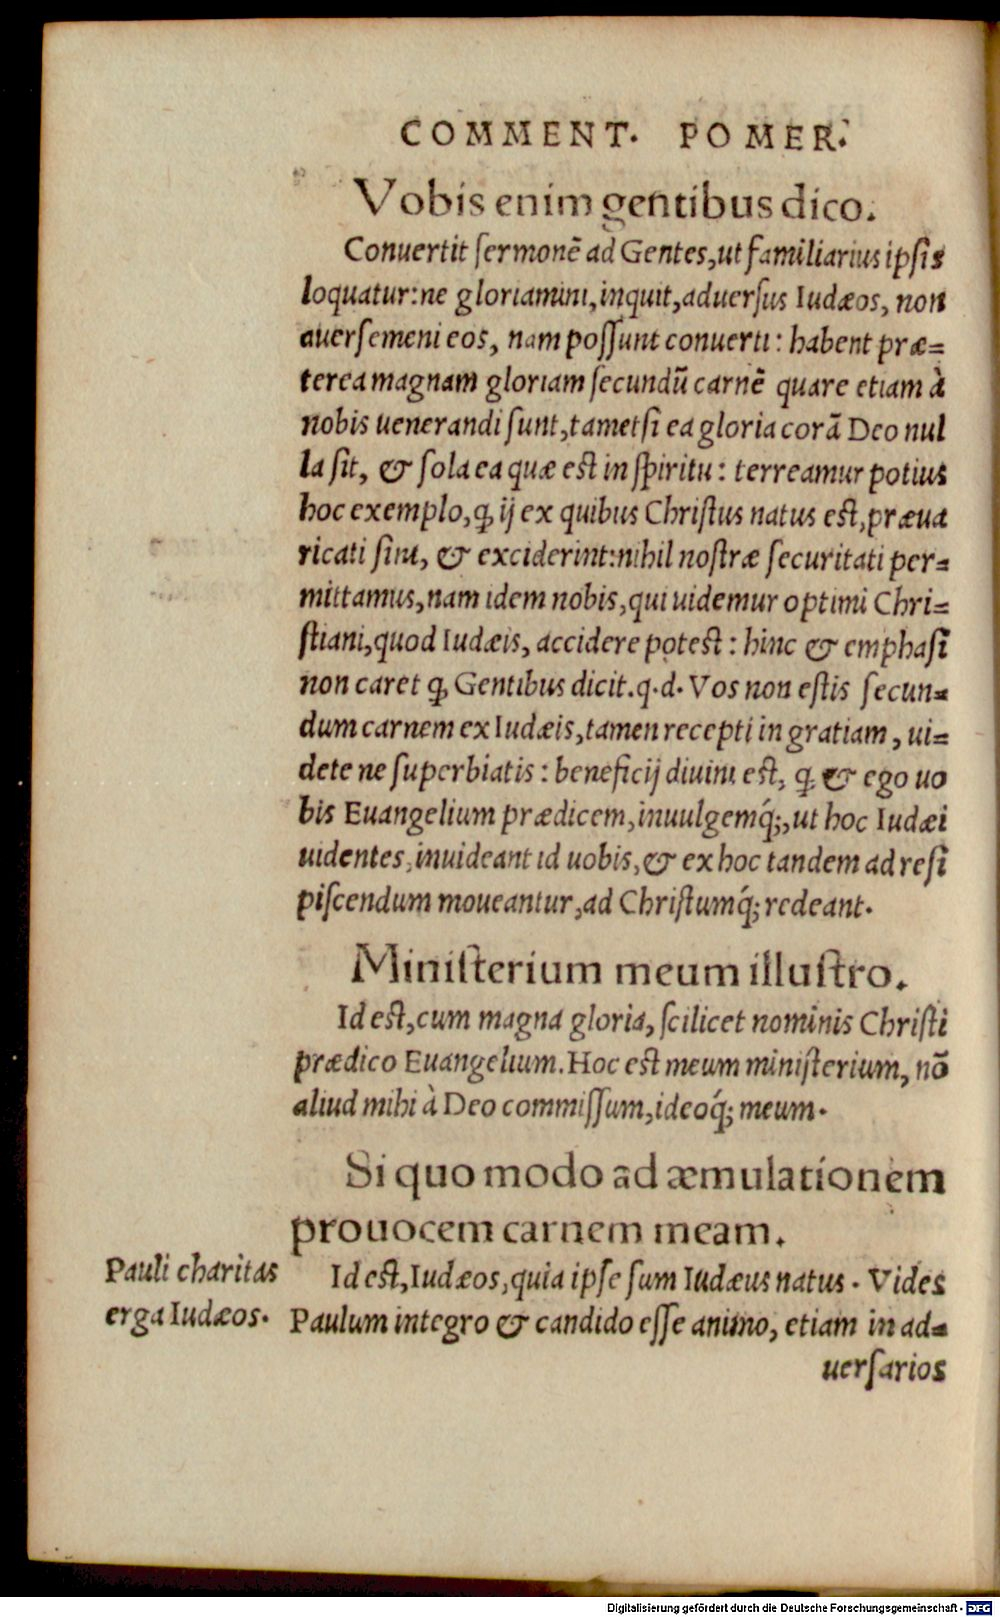 COMMENT. POMER.
Vobis enim gentibus dico.
Conuertit ſermonē ad Gentes, ut familiarius ipſis
loquatur: ne gloriamini, inquit, aduerſus Iudæos, non
auerſemeni eos, nam poſſunt conuerti: habent præ=
terea magnam gloriam ſecundū carnē quare etiam à
nobis uenerandi ſunt, tametſi ea gloria corā Deo nul
la ſit, & ſola ea quæ est in ſpiritu: terreamur potius
hoc exemplo, ꝙ ij ex quibus Chriſtus natus est, præua
ricati ſint, & exciderint: nihil noſtræ ſecuritati per=
mittamus, nam idem nobis, qui uidemur optimi Chri=
ſtiani, quod Iudæis, accidere potest: hinc & emphaſi
non caret ꝙ Gentibus dicit. q. d. Vos non eſtis ſecun=
dum carnem ex Iudæis, tamen recepti in gratiam, ui=
dete ne ſuperbiatis: beneficij diuini est, ꝙ & ego uo
bis Euangelium prædicem, inuulgemq́;, ut hoc Iudæi
uidentes, inuideant id uobis, & ex hoc tandem ad reſi
piſcendum moueantur, ad Chriſtumq́; redeant.
Miniſterium meum illuſtro.
Id est, cum magna gloria, ſcilicet nominis Chriſti
prædico Euangelium. Hoc est meum miniſterium, nō
aliud mihi à Deo commiſſum, ideoq́; meum.
Si quo modo ad æmulationem
prouocem carnem meam.
Pauli charitas
erga Iudæos.
Id est, Iudæos, quia ipſe ſum Iudæus natus. Vides
Paulum integro & candido eſſe animo, etiam in ad=
uerſarios
Digitalisierung gefördert durch die Deutsche Forschungsgemeinschaft - DFG